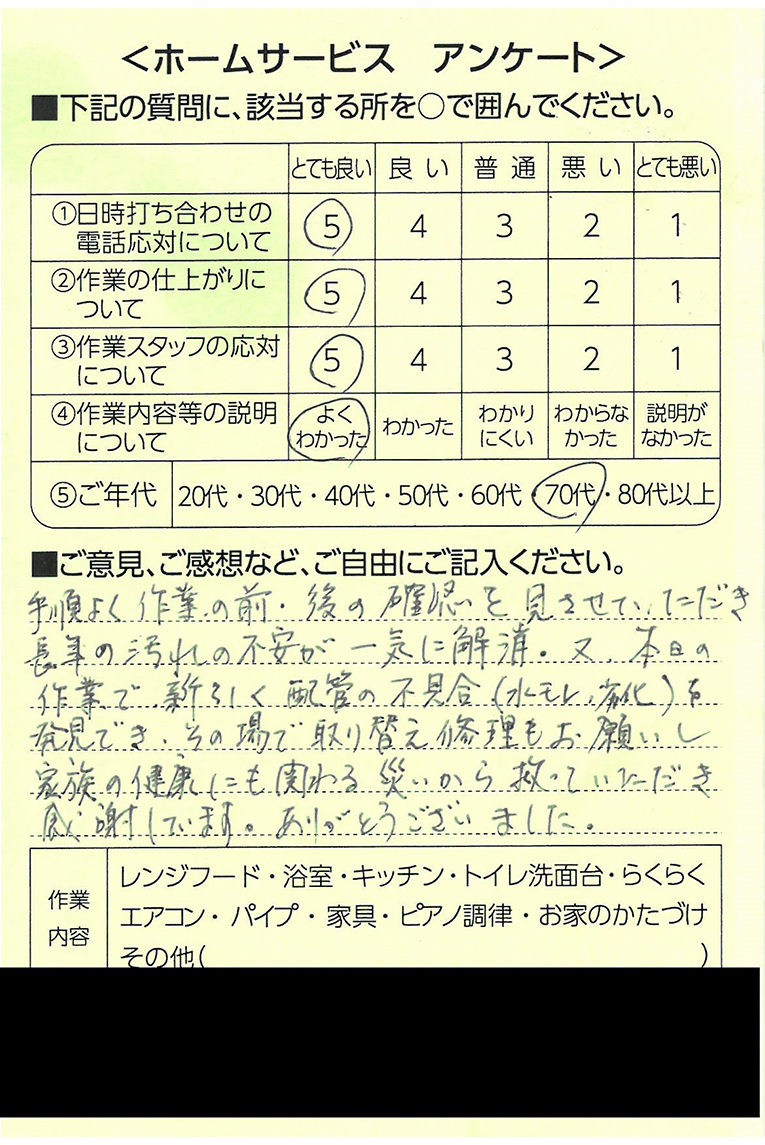 ＜ホームサービス　アンケート＞
■下記の質問に、該当する所を○で囲んでください。
とても良い　良い　普通　悪い　とても悪い
①日時打ち合わせの
電話応対について　5　4　3　2　1
②作業の仕上がりに
ついて　5　4　3　2　1
③作業スタッフの応対
について　5　4　3　2　1
④作業内容等の説明
について　よくわかった　わかった　わかりにくい　わからなかった　説明がなかった
⑤ご年代　20代・30代・40代・50代・60代・70代・80代以上
■ご意見、ご感想など、ご自由にご記入ください。
手順よく作業の前・後の確認を見させていただき
長年の汚れの不安が一気に解消。又、本日の
作業で新らしく配管の不具合(水モレ、劣化)を
発見でき、その場で取り替え修理もお願いし
家族の健康にも関わる災いから救っていただき
感謝しています。ありがとうございました。
作業内容
レンジフード・浴室・キッチン・トイレ洗面台・らくらく
エアコン・パイプ・家具・ピアノ調律・お家のかたづけ
その他(　)